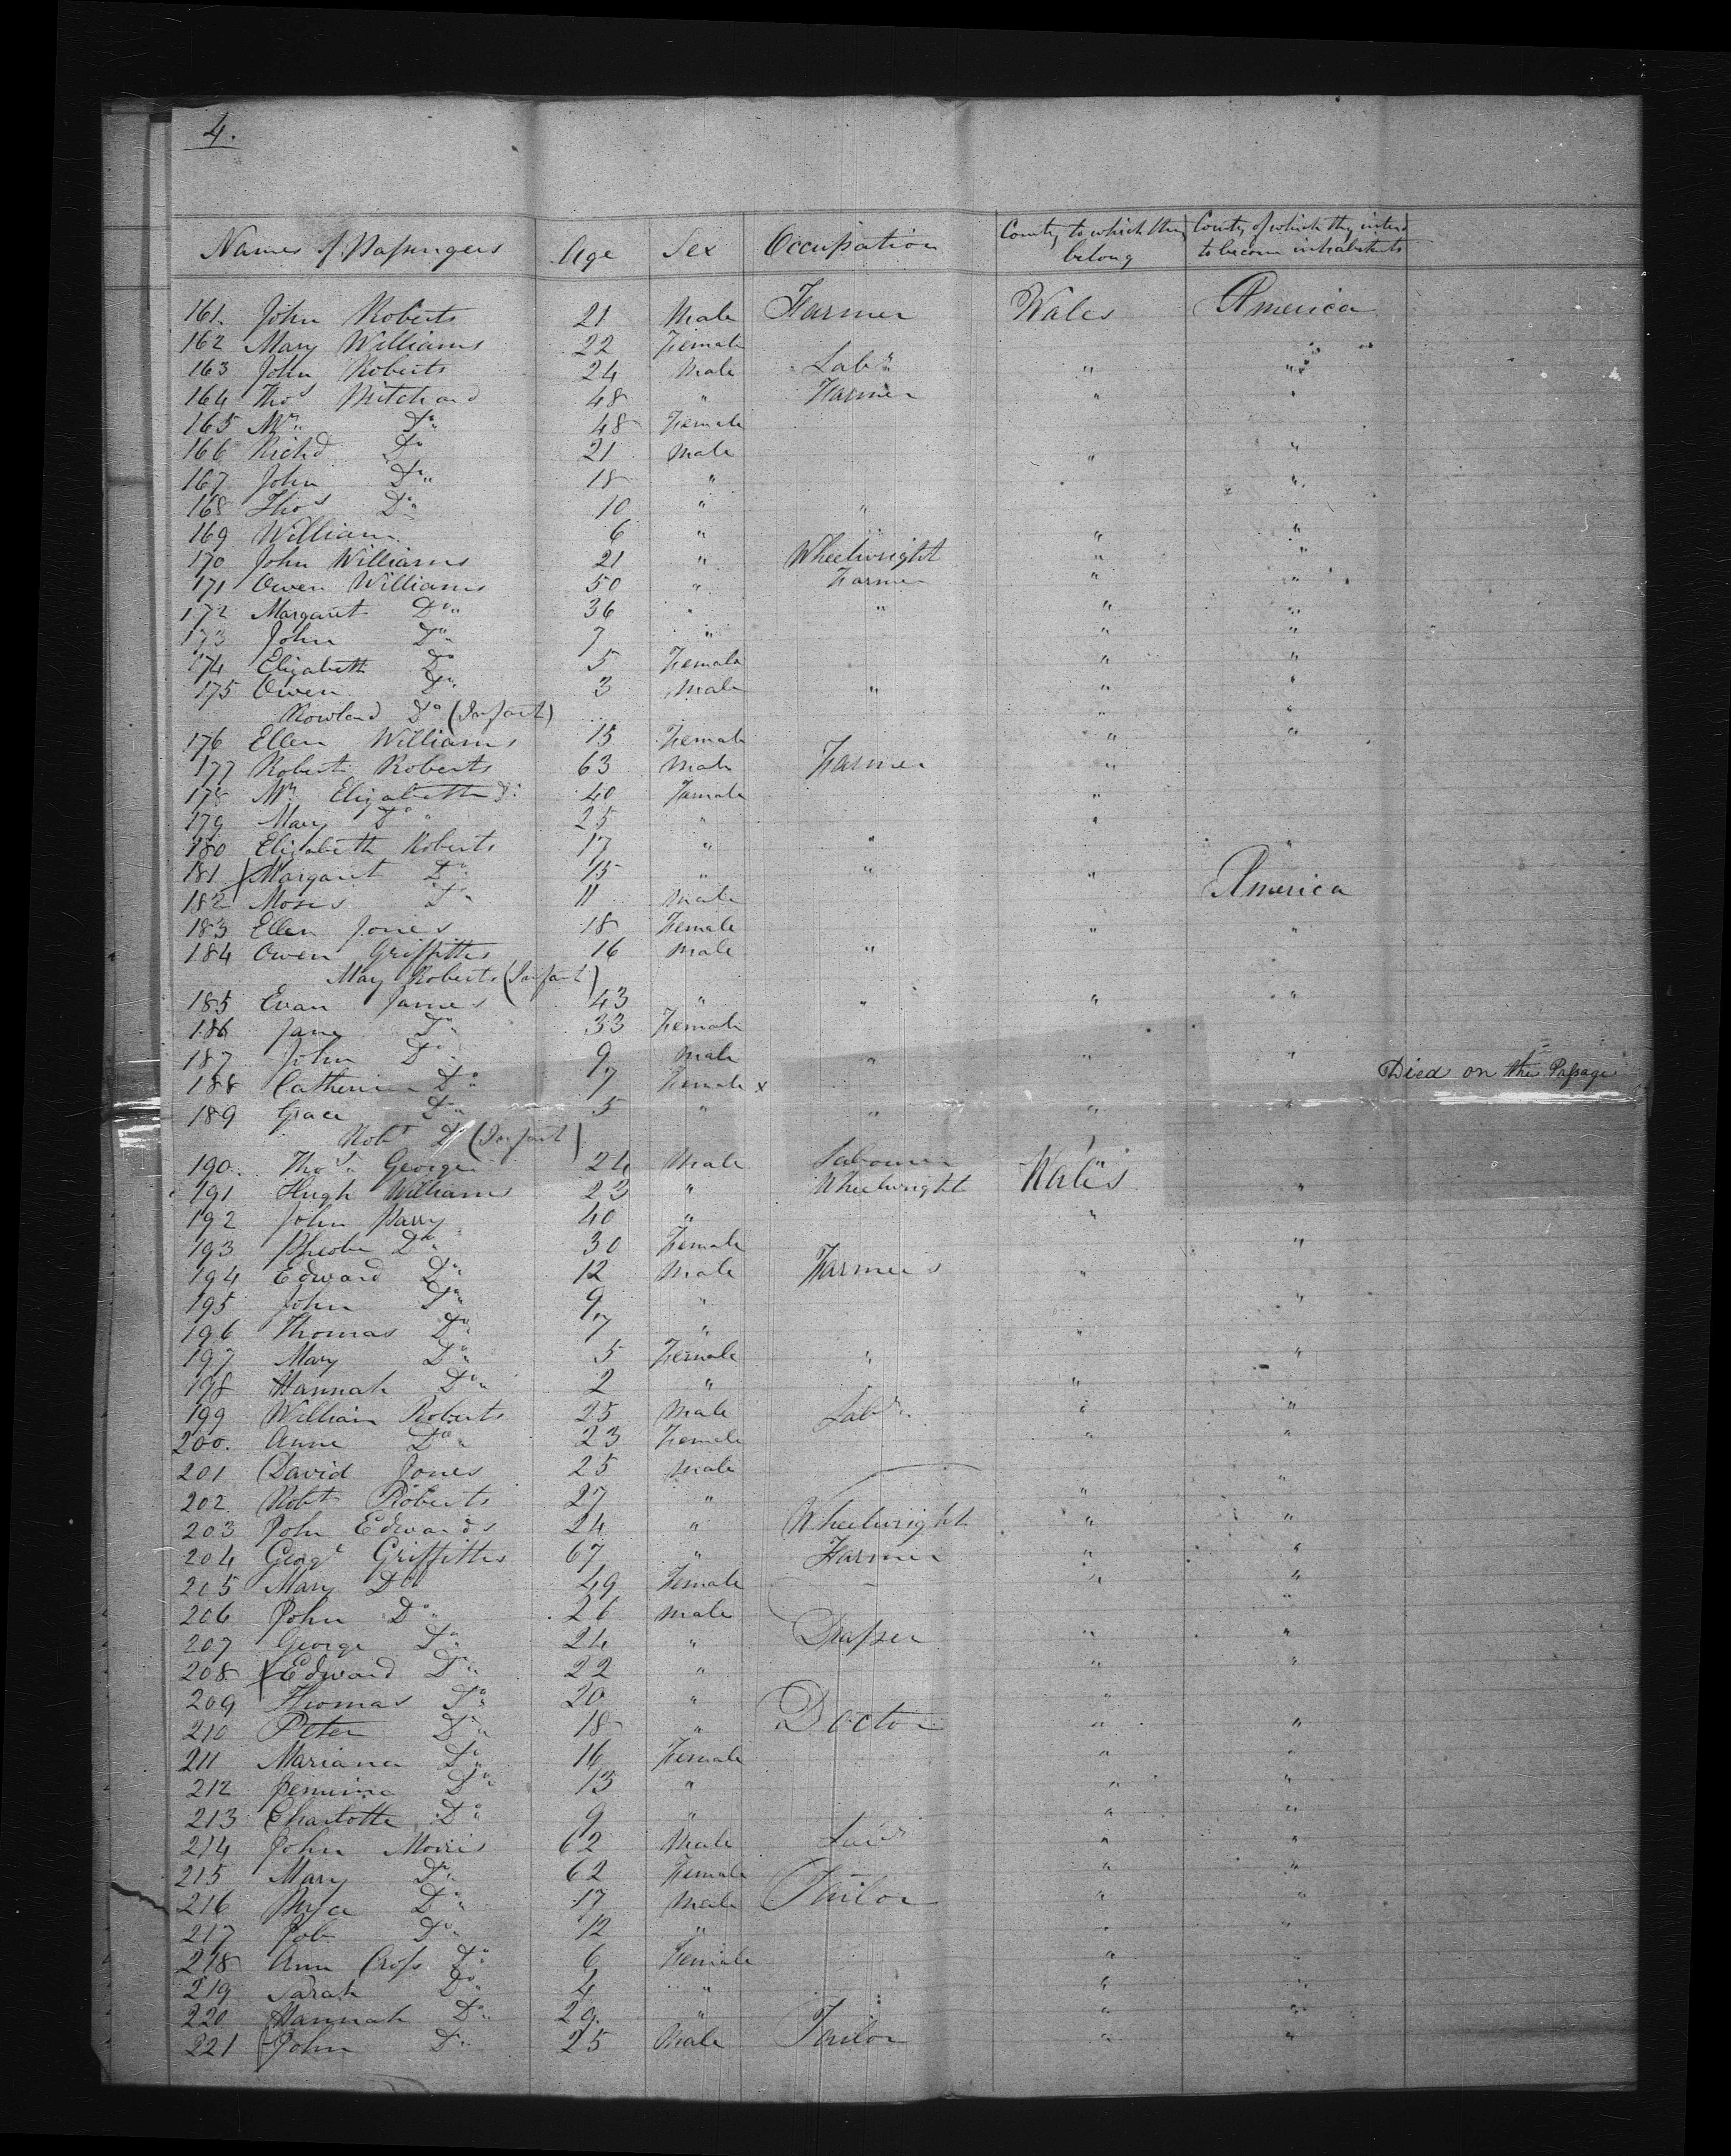 4.
Names of Passengers Age Sex Occupation Country to which they belong Country of which they intend to become inhabitants
161. John Roberts 21 Male Farmer Wales America
162 Mary Williams 22 Female " "
163 John Roberts 24 Male Labr " "
164 Thos Pritchard 48 " Farmer " "
165 Mrs Do 48 Female
166 Richd Do 21 Male " "
167 John Do 18 " "
168 Thos Do 10 " "
169 William 6 " " "
170 John Williams 21 " Wheelwright " "
171 Owen Williams 50 " Farmer " "
172 Margaret Do 36 " " " "
173 John Do 7 " " "
174 Elizabeth Do 5 Female " "
175 Owen Do 3 Male " " "
Rowland Do (Infant) " "
176 Ellen Williams 15 Female " "
177 Robert Roberts 63 Male Farmer "
178 Mrs Elizabeth Do 40 Female "
179 Mary Do 25 " "
180 Elizabeth Roberts 17 " " "
181 Margaret Do 15 " " "
182 Moses Do 11 Male America
183 Ellen Jones 18 Female " "
184 Owen Griffiths 16 Male "
Mary Roberts (Infant)
185 Evan James 43 " " " "
186 Jane Do 33 Female
187 John Do 9 Male " " "
188 Catherine Do 7 Female x Died on the Passage
189 Grace Do 5 " " " "
Robt Do (Infant)
190. Thos George 24 Male Labourer Wales
191 Hugh Williams 23 " Wheelwright "
192 John Parry 40 " "
193 Pheobe Do 30 Female "
194 Edward Do 12 Male Farmers "
195 John Do 9 " "
196 Thomas Do 7 " "
197 Mary Do 5 Female " "
198 Hannah Do 2 " "
199 William Roberts 25 Male Labr " "
200. Anne Do 23 Female " "
201 David Jones 25 Male "
202 Robt Roberts 27 " "
203 John Edwards 24 " Wheelwright " "
204 George Griffiths 67 " Farmer " "
205 Mary Do 49 Female " "
206 John Do 26 Male "
207 George Do 24 " Draper " "
208 Edward Do 22 " " "
209 Thomas Do 20 " "
210 Peter Do 18 " Doctor " "
211 Mariana Do 16 Female " "
212 Jemima Do 13 " " "
213 Charlotte Do 9 " " "
214 John Morris 62 Male Labr " "
215 Mary Do 62 Female " "
216 Do 17 Male Tailor " "
217 Job Do 12 " " "
218 Ann Cross Do 6 Female " "
219 Sarah Do 4 " " "
220 Hannah Do 29. " " "
221 John Do 25 Male Tailor " "